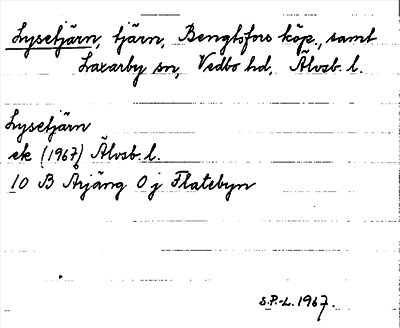 Lysetjärn, tjärn, Bengtsfors köp., samt
Laxarby sn, Vedbo hd, Älvsb. l.
Lysetjärn
ek (1967) Älvsb. l.
10 B Årjäng 0 j Flatebyn
S.P.-L. 1967.